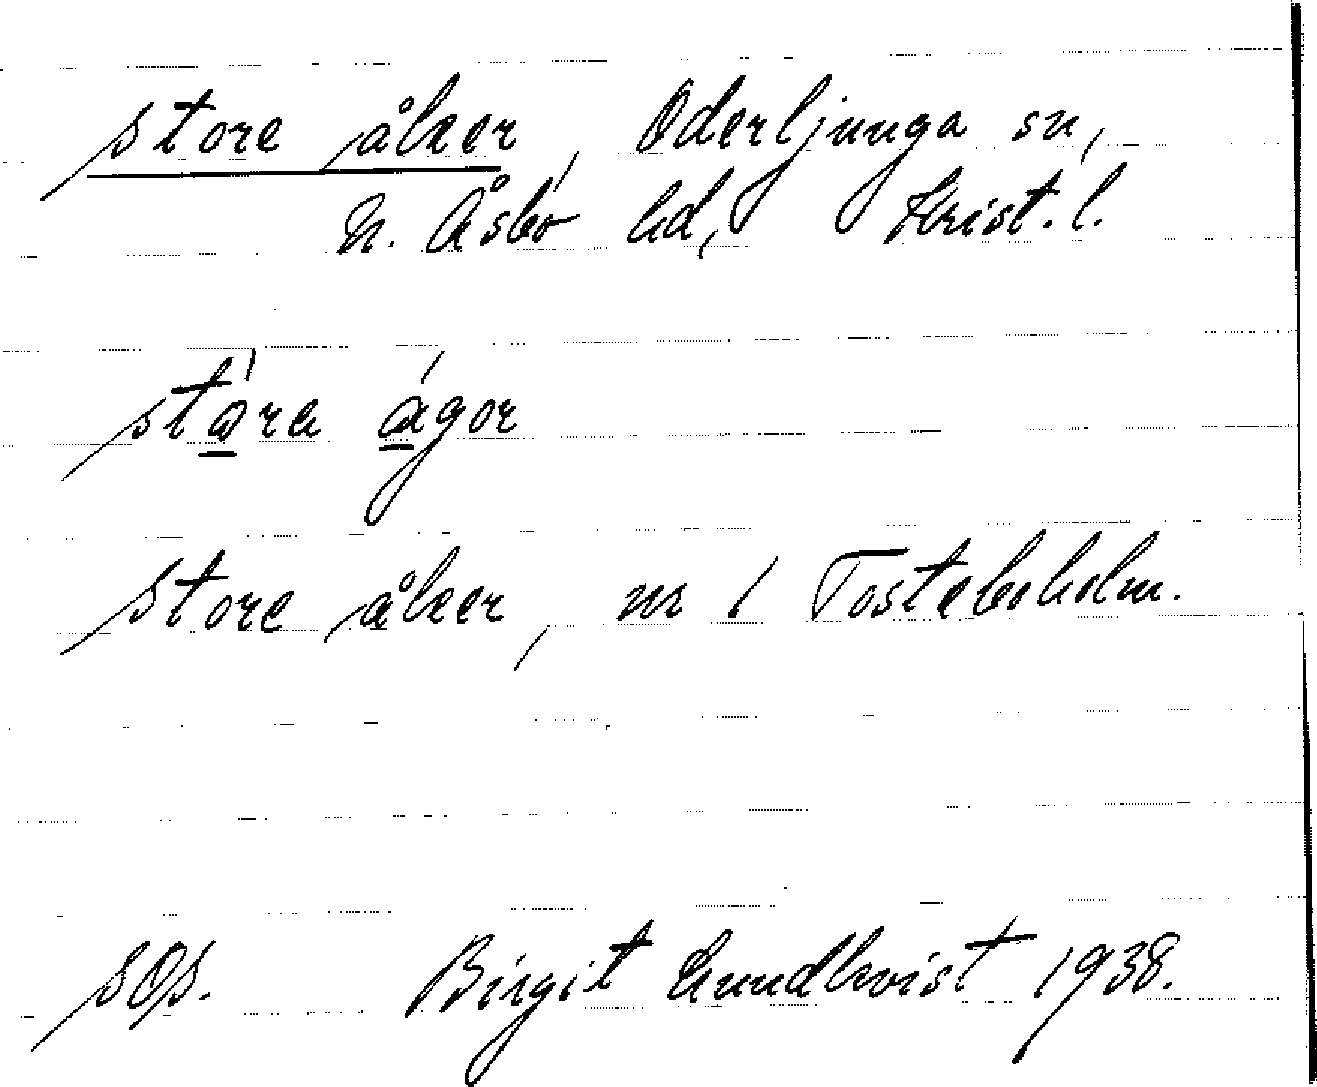 store åker, Oderljunga sn,
N. Åsbo hd, Krist. l.
stǻra ágor
store åker, nr 1 Tosteboholm.
sOs. Birgit Lundkvist 1938.